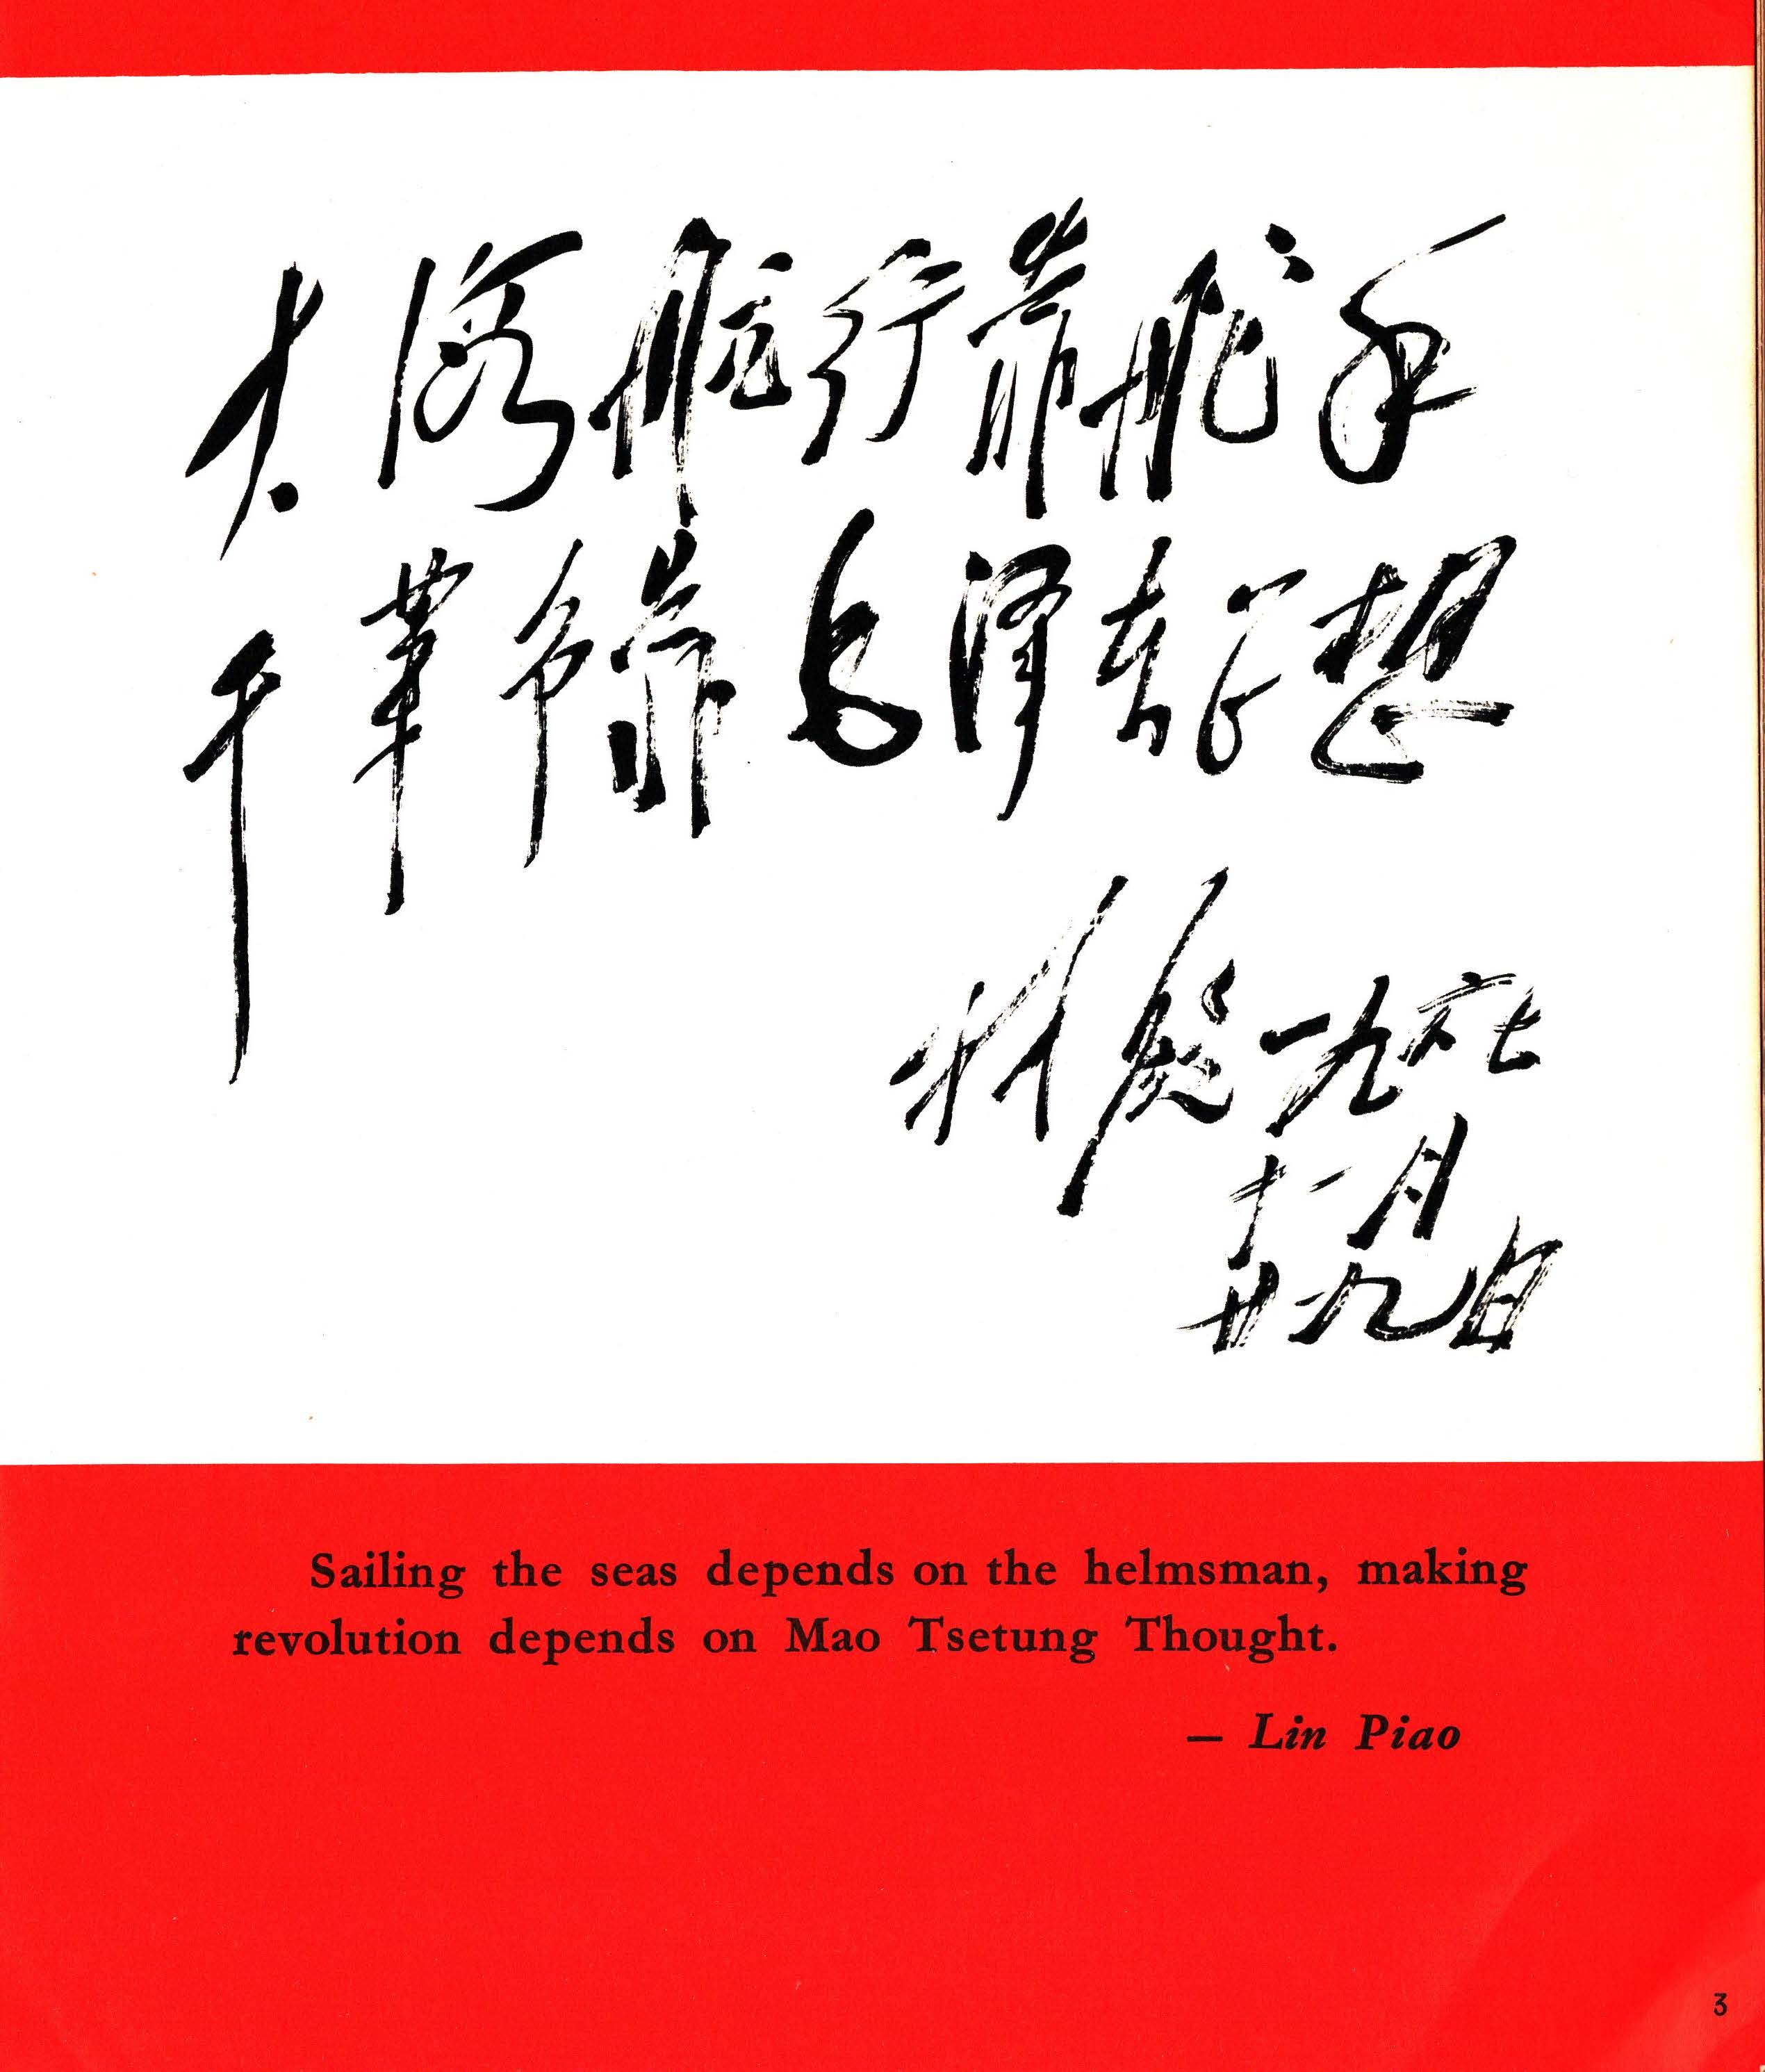 大海航行靠舵手
干革命靠毛泽东思想
林彪一九六七
十一月
廿九日
Sailing the seas depends on the helmsman, making
revolution depends on Mao Tsetung Thought.
— Lin Piao
3